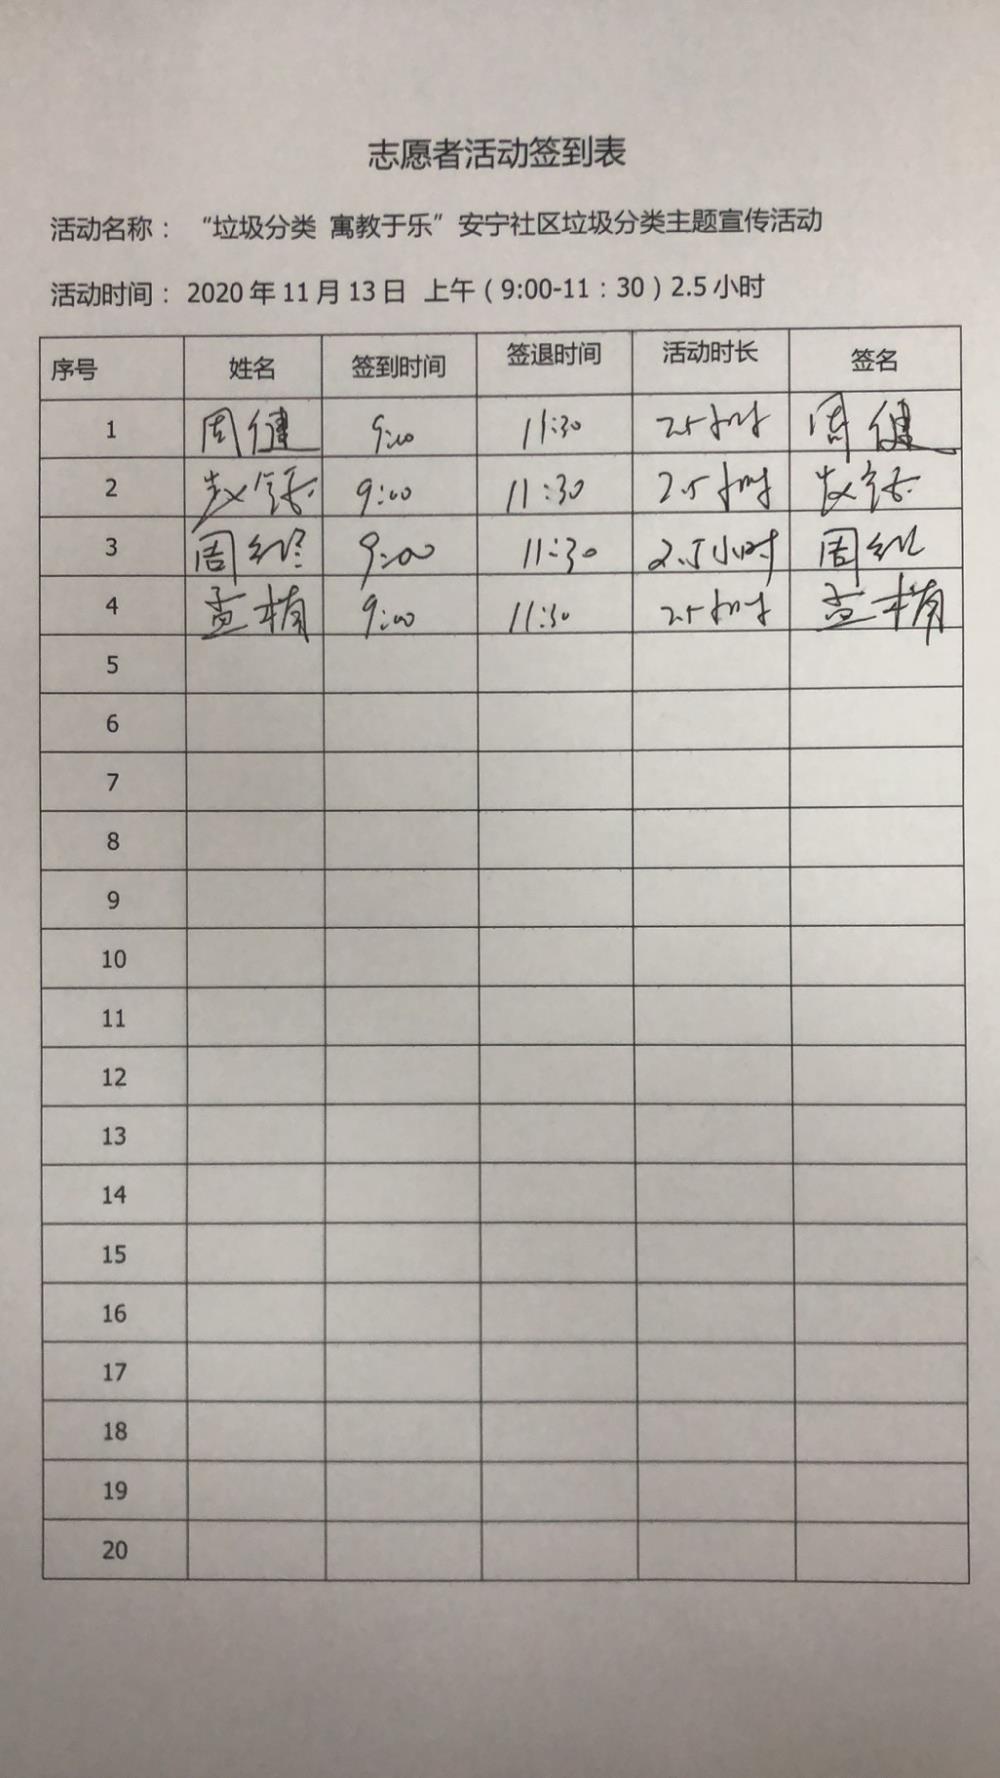 志愿者活动签到表
活动名称： “垃圾分类 寓教于乐”安宁社区垃圾分类主题宣传活动
活动时间： 2020 年 11 月 13 日 上午（9:00-11：30）2.5 小时
序号 姓名 签到时间 签退时间 活动时长 签名
1 周健 9:00 11:30 2.5小时 周健
2 赵 9:00 11:30 2.5小时 赵
3 周 9:00 11:30 2.5小时 周
4 孟楠 9:00 11:30 2.5小时 孟楠
5
6
7
8
9
10
11
12
13
14
15
16
17
18
19
20